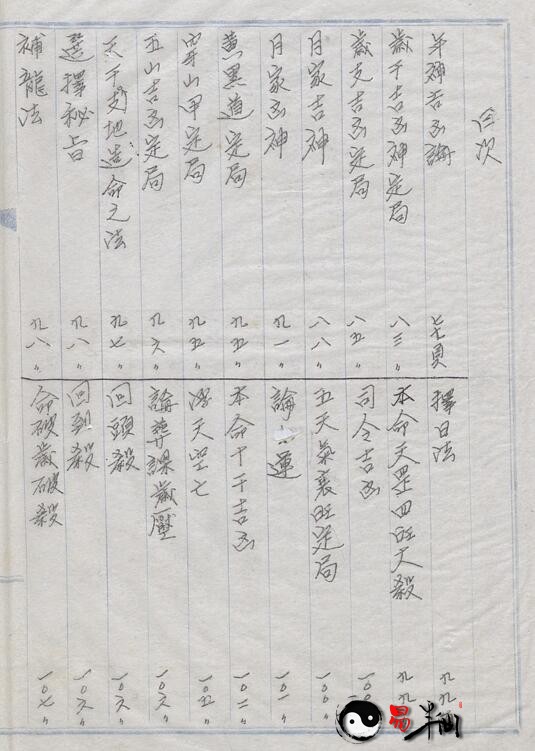 目次
年神吉凶論 七七頁
歲干吉凶神定局 八三〃
歲支吉凶定局 八五〃
月家吉神 八八〃
月家凶神 九一〃
黃黑道定局 九五〃
穿山甲定局 九五〃
五山吉凶定局 九六〃
天干竅地造命之法 九七〃
選擇秘旨 九八〃
補龍法 九八〃
擇日法 九九〃
本命天罡四旺大殺 九九
司令吉凶 一〇〇
五天氣衰旺定局 一〇〇〃
論 運 一〇一〃
本命十干吉凶 一〇二〃
浮天空亡 一〇五〃
論葬課歲壓 一〇六〃
回頭殺 一〇六〃
回到殺 一〇六〃
命破歲破殺 一〇七〃
易半仙